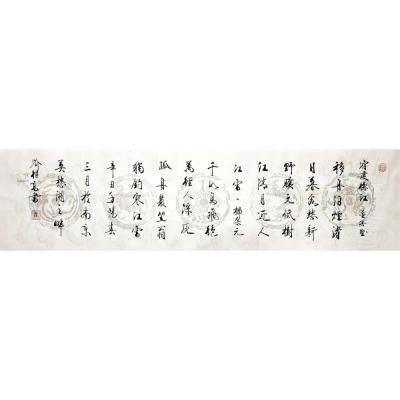 宿建德江 孟浩然
移舟泊煙渚
日暮客愁新
野曠天低樹
江清月近人
江雪·柳宗元
千山鳥飛絕
萬徑人蹤滅
孤舟蓑笠翁
獨釣寒江雪
辛丑年陽春
三月於南京
莫愁湖之畔